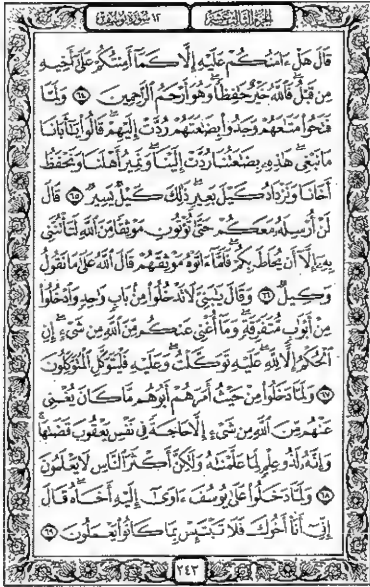 الجزء الثالث عشر
١٢ سورة يوسف
قَالَ هَلْ ءَامَنُكُمْ عَلَيْهِ إِلَّا كَمَآ أَمِنتُكُمْ عَلَىٰٓ أَخِيهِ
مِن قَبْلُ فَٱللَّهُ خَيْرٌ حَـٰفِظًا وَهُوَ أَرْحَمُ ٱلرَّٰحِمِينَ ٦٤ وَلَمَّا
فَتَحُوا۟ مَتَـٰعَهُمْ وَجَدُوا۟ بِضَـٰعَتَهُمْ رُدَّتْ إِلَيْهِمْ قَالُوا۟ يَـٰٓأَبَانَا
مَا نَبْغِى هَـٰذِهِۦ بِضَـٰعَتُنَا رُدَّتْ إِلَيْنَا وَنَمِيرُ أَهْلَنَا وَنَحْفَظُ
أَخَانَا وَنَزْدَادُ كَيْلَ بَعِيرٍ ذَٰلِكَ كَيْلٌ يَسِيرٌ ٦٥ قَالَ
لَنْ أُرْسِلَهُۥ مَعَكُمْ حَتَّىٰ تُؤْتُونِ مَوْثِقًا مِّنَ ٱللَّهِ لَتَأْتُنَّنِى
بِهِۦٓ إِلَّآ أَن يُحَاطَ بِكُمْ فَلَمَّآ ءَاتَوْهُ مَوْثِقَهُمْ قَالَ ٱللَّهُ عَلَىٰ مَا نَقُولُ
وَكِيلٌ ٦٦ وَقَالَ يَـٰبَنِىَّ لَا تَدْخُلُوا۟ مِنۢ بَابٍ وَٰحِدٍ وَٱدْخُلُوا۟
مِنْ أَبْوَٰبٍ مُّتَفَرِّقَةٍ وَمَآ أُغْنِى عَنكُم مِّنَ ٱللَّهِ مِن شَىْءٍ إِنِ
ٱلْحُكْمُ إِلَّا لِلَّهِ عَلَيْهِ تَوَكَّلْتُ وَعَلَيْهِ فَلْيَتَوَكَّلِ ٱلْمُتَوَكِّلُونَ
٦٧ وَلَمَّا دَخَلُوا۟ مِنْ حَيْثُ أَمَرَهُمْ أَبُوهُم مَّا كَانَ يُغْنِى
عَنْهُم مِّنَ ٱللَّهِ مِن شَىْءٍ إِلَّا حَاجَةً فِى نَفْسِ يَعْقُوبَ قَضَىٰهَا
وَإِنَّهُۥ لَذُو عِلْمٍ لِّمَا عَلَّمْنَـٰهُ وَلَـٰكِنَّ أَكْثَرَ ٱلنَّاسِ لَا يَعْلَمُونَ
٦٨ وَلَمَّا دَخَلُوا۟ عَلَىٰ يُوسُفَ ءَاوَىٰٓ إِلَيْهِ أَخَاهُ قَالَ
إِنِّىٓ أَنَا۠ أَخُوكَ فَلَا تَبْتَئِسْ بِمَا كَانُوا۟ يَعْمَلُونَ ٦٩
٢٤٣